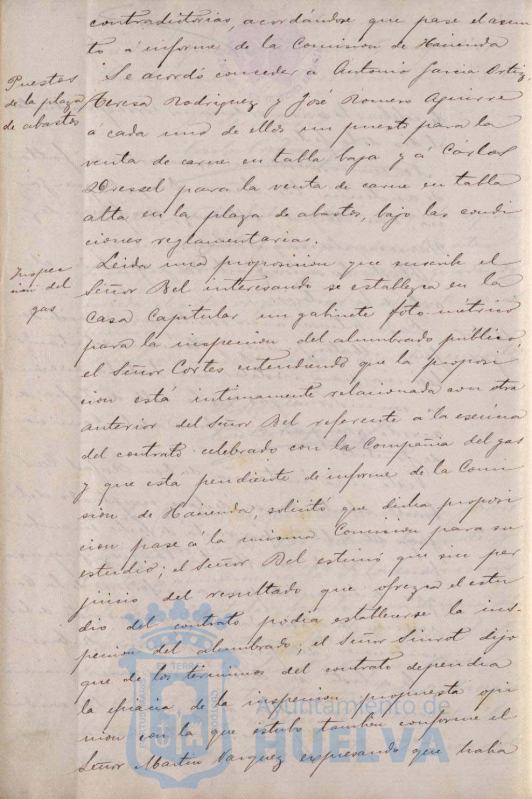 contradictorias, acordándose que pase el asun
to á informe de la Comision de Hacienda
Puestos
de la plaza
de abastos
Se acordó conceder á Antonio Garcia Ortiz,
Teresa Rodriguez y José Romero Aguirre
á cada uno de ellos un puesto para la
venta de carne en tabla baja y á Cárlos
Dressel para la venta de carne en tabla
alta en la plaza de abastos, bajo las condi
ciones reglamentarias.
Inspec
cion del
gas
Leida una proposicion que suscribe el
Señor Bel interesando se establezca en la
Casa Capitular un gabinete foto-métrico
para la inspeccion del alumbrado público,
el Señor Cortes entendiendo que la proposi
cion está intimamente relacionada con otra
anterior del Señor Bel referente á la esencia
del contrato celebrado con la Compañia del gas
y que esta pendiente de informe de la Comi
sion de Hacienda, solicitó que dicha proposi
cion pase á la misma Comision para su
estudio; el Señor Bel estimó que sin per
juicio del resultado que ofrezca el estu
dio del contrato podia establecerse la ins
peccion del alumbrado; el Señor Sinrot dijo
que de los términos del contrato dependia
la eficacia de la inspeccion propuesta opi
nion con la que estubo tambien conforme el
Señor Martin Vazquez expresando que habia
Ayuntamiento de
HUELVA